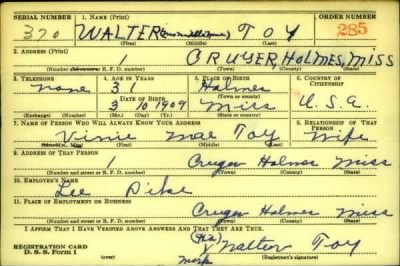 SERIAL NUMBER 1. NAME (Print) ORDER NUMBER
320 WALTER (no middle name) TOY 285
(First) (Middle) (Last)
2. ADDRESS (Print)
CRUGER, HOLMES, MISS
(Number and street or R. F. D. number) (Town) (County) (State)
3. TELEPHONE 4. AGE IN YEARS 5. PLACE OF BIRTH 6. COUNTRY OF CITIZENSHIP
none 31 Holmes
DATE OF BIRTH (Town or county)
3 10 1909 Miss U.S.A.
(Exchange) (Number) (Mo.) (Day) (Yr.) (State or country)
7. NAME OF PERSON WHO WILL ALWAYS KNOW YOUR ADDRESS 8. RELATIONSHIP OF THAT PERSON
Vinie Mae Toy Wife
(Mr., Mrs., Miss) (First) (Middle) (Last)
9. ADDRESS OF THAT PERSON
1 Cruger Holmes Miss
(Number and street or R. F. D. number) (Town) (County) (State)
10. EMPLOYER'S NAME
Lee Pike
11. PLACE OF EMPLOYMENT OR BUSINESS
Cruger Holmes Miss
(Number and street or R. F. D. number) (Town) (County) (State)
I AFFIRM THAT I HAVE VERIFIED ABOVE ANSWERS AND THAT THEY ARE TRUE.
REGISTRATION CARD (His) Walter Toy
D. S. S. Form 1 mark (Registrant's signature)